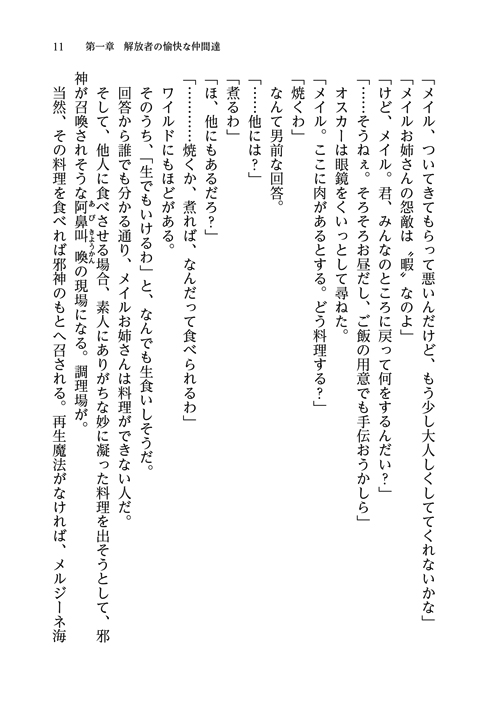 11　第一章　解放者の愉快な仲間達
「メイル、ついてきてもらって悪いんだけど、もう少し大人しくしててくれないかな」
「メイルお姉さんの怨敵は〝暇〟なのよ」
「けど、メイル。君、みんなのところに戻って何をするんだい？」
「……そうねぇ。そろそろお昼だし、ご飯の用意でも手伝おうかしら」
オスカーは眼鏡をくいっとして尋ねた。
「メイル。ここに肉があるとする。どう料理する？」
「焼くわ」
なんて男前な回答。
「……他には？」
「煮るわ」
「ほ、他にもあるだろ？」
「…………焼くか、煮れば、なんだって食べられるわ」
ワイルドにもほどがある。
そのうち、「生でもいけるわ」と、なんでも生食いしそうだ。
回答から誰でも分かる通り、メイルお姉さんは料理ができない人だ。
そして、他人に食べさせる場合、素人にありがちな妙に凝った料理を出そうとして、邪
神が召喚されそうな阿鼻叫喚の現場になる。調理場が。
当然、その料理を食べれば邪神のもとへ召される。再生魔法がなければ、メルジーネ海